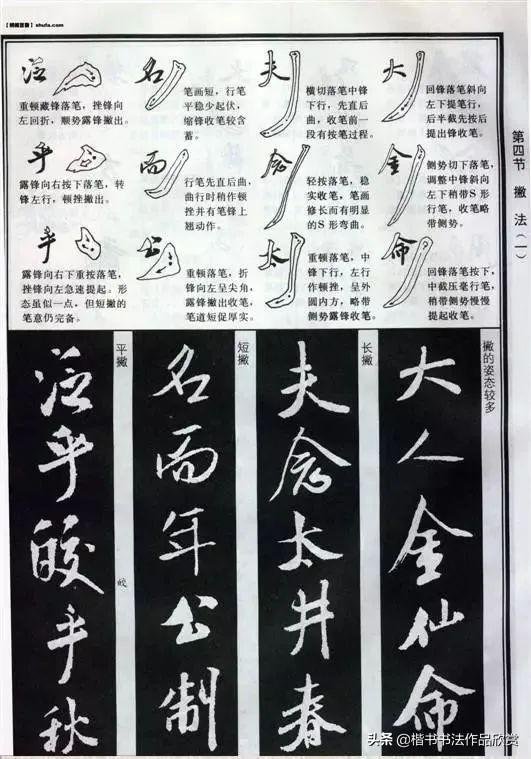 【书阁首发】shufa.com
第四节 撇法（一）
大
回锋落笔斜向
左下提笔行，
后半截先按后
提出锋收笔。
夫
横切落笔中锋
下行，先直后
曲，收笔前一
段有按笔过程。
名
笔画短，行笔
平稳少起伏，
缩锋收笔较含
蓄。
泛
重顿藏锋落笔，挫锋向
左回折，顺势露锋撇出。
金
侧势切下落笔，
调整中锋斜向
左下稍带S形
行笔，收笔略
带侧势。
念
轻按落笔，稳
实收笔，笔画
修长而有明显
的S形弯曲。
而
行笔先直后曲，
曲行时稍作顿
挫并有笔锋上
翘动作。
乎
露锋向右按下落笔，转
锋左行，顿挫撇出。
命
回锋落笔按下，
中截压毫行笔，
稍带侧势慢慢
提起收笔。
太
重顿落笔，中
锋下行，左行
作顿挫，呈外
圆内方，略带
侧势露锋收笔。
公
重顿落笔，折
锋向左呈尖角，
露锋撇出收笔，
笔道短促厚实。
乎
露锋向右下重按落笔，
挫锋向左急速提起。形
态虽似一点，但短撇的
笔意仍完备。
撇的姿态较多
大人金仙命
长撇
夫念太井春
短撇
名而年公制
平撇
泛乎皎乎秋
皎
头条@楷书书法作品欣赏